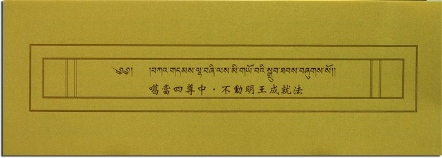 ༄༅། །བཀའ་གདམས་ལྷ་བཞི་ལས་མི་གཡོ་བའི་སྒྲུབ་ཐབས་བཞུགས་སོ། །
噶當四尊中·不動明王成就法